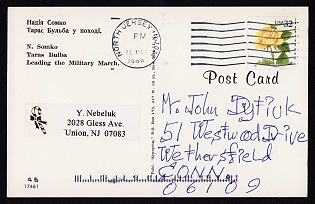 Надія Сомко
Тарас Бульба у поході.
N. Somko
Taras Bulba
Leading the Military March.
NORTH JERSEY
PM
1998
USA 32
Post Card
Y. Nebeluk
2028 Gless Ave.
Union, NJ 07083
Mr. John Dytiuk
51 Westwood Drive
Wethersfield
CONN.
06109
17461